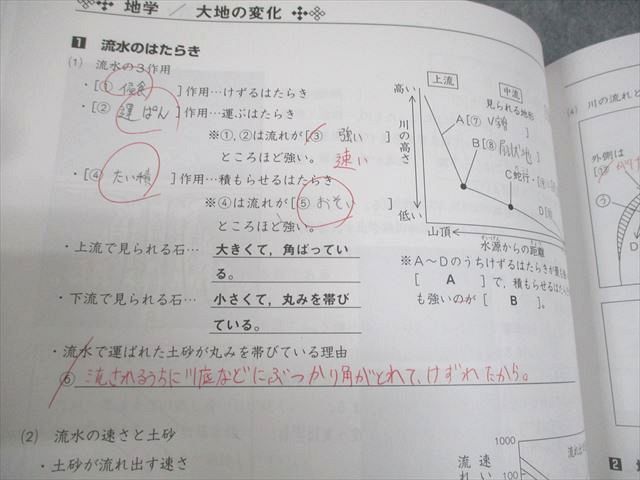 地学 / 大地の変化
1 流水のはたらき
(1) 流水の3作用
・[① 侵食 ]作用…けずるはたらき
・[② 運ぱん ]作用…運ぶはたらき
※①,②は流れが[③ 強い ]
速い
ところほど強い。
・[④ たい積 ]作用…積もらせるはたらき
※④は流れが[⑤ おそい ]
ところほど強い。
・上流で見られる石… 大きくて,角ばってい
る。
・下流で見られる石… 小さくて,丸みを帯び
ている。
・流水で運ばれた土砂が丸みを帯びている理由
⑥ 流されるうちに川底などにぶつかり角がとれて,けずれたから。
(2) 流水の速さと土砂
・土砂が流れ出す速さ
上流
中流
高い
川の高さ
低い
見られる地形
A[⑦ V字谷 ]
B[⑧ 扇状地 ]
C蛇行・
D
山頂
水源からの距離
※A〜Dのうちけずるはたらきが最も
[ A ]で,積もらせるはた
も強いのが[ B ]。
(4) 川の流れと
外側は
1000
流れ出
流 速
れ い
100
2